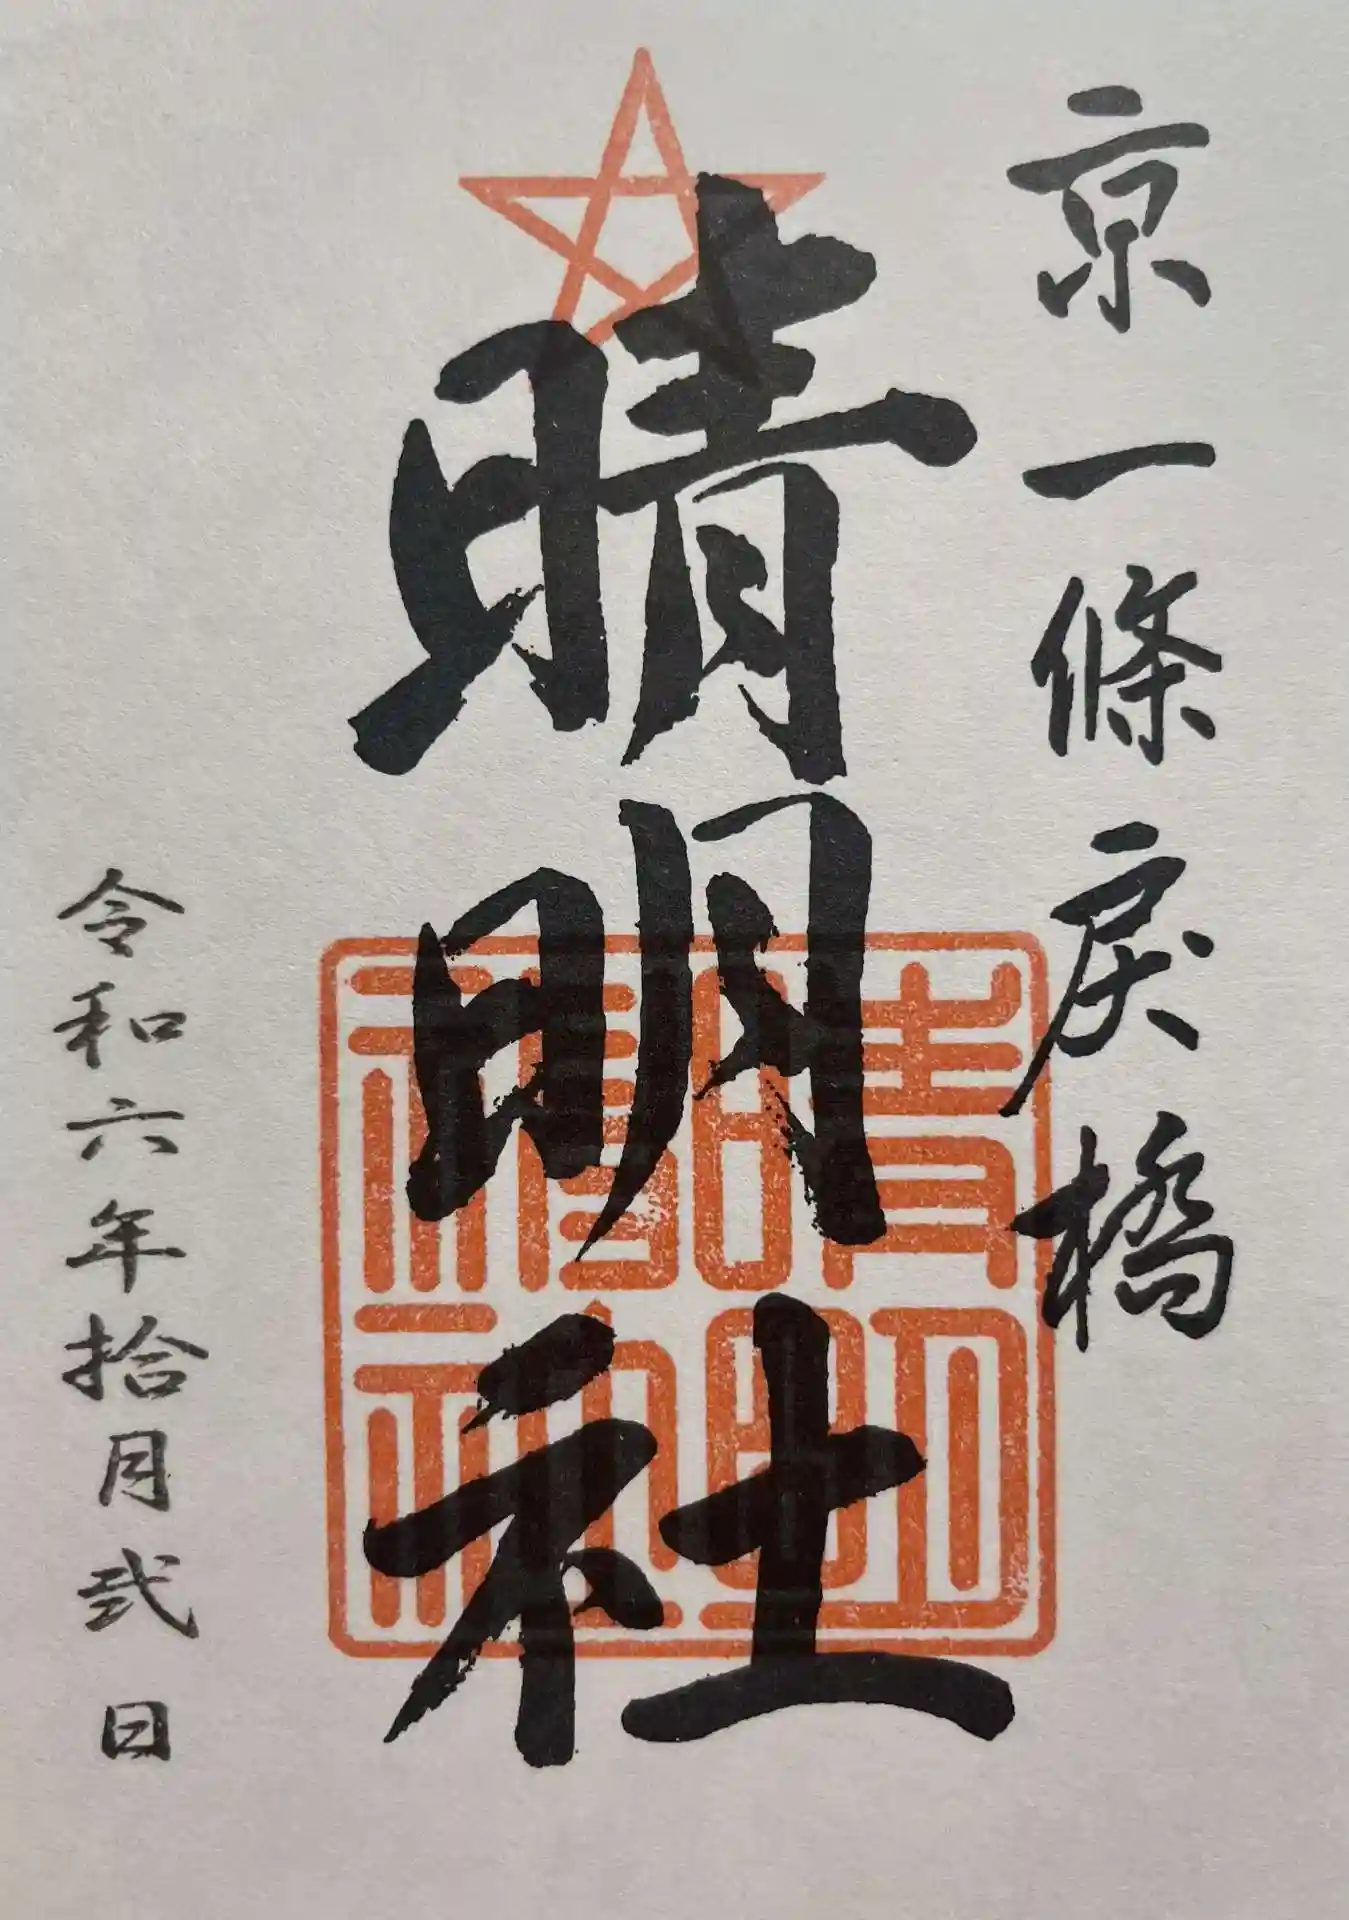 京一條戻橋
晴明社
晴明神社
令和六年拾月弐日